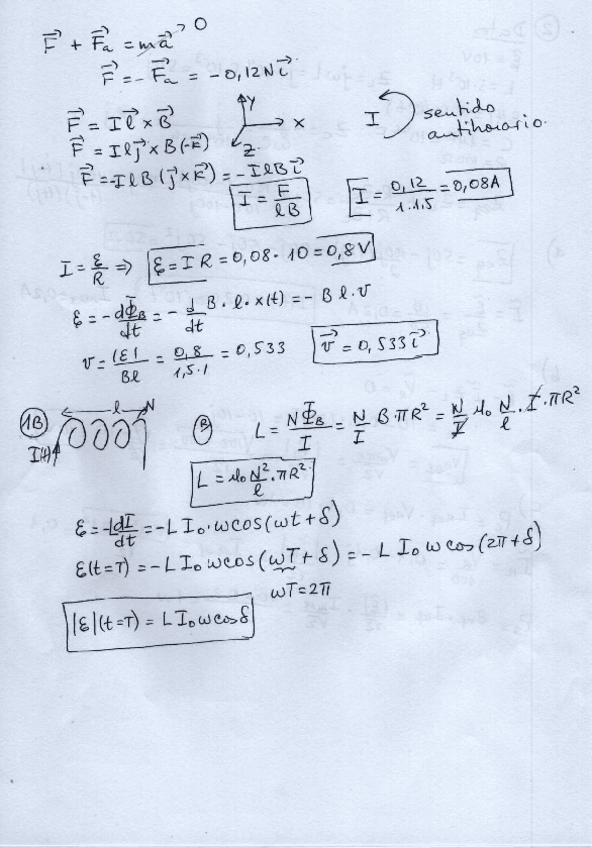 F⃗ + F⃗a = ma⃗ → 0
F⃗ = - F⃗a = -0,12N i⃗
F⃗ = I l⃗ × B⃗
F⃗ = I l j⃗ × B (-k⃗)
F⃗ = -I l B (j⃗ × k⃗) = - I l B i⃗
Y
X
Z
I sentido
antihorario.
I = F / lB
I = 0,12 / 1·1,5 = 0,08A
I = ε/R ⇒ ε = I R = 0,08·10 = 0,8V
ε = - dΦB/dt = - d/dt B·l·x(t) = - B l·v
v = |ε|/Bl = 0,8/1,5·1 = 0,533
v⃗ = 0,533 i⃗
1B
l N
I(t)
R
L = NΦB/I = N/I B·πR² = N/I μ0 N/l·I·πR²
L = μ0 N²/l·πR²
ε = -L dI/dt = -L I0·ωcos(ωt+δ)
ε(t=T) = -L I0 ωcos(ωT+δ) = -L I0 ω cos(2π+δ)
ωT=2π
|ε|(t=T) = L I0 ωcosδ